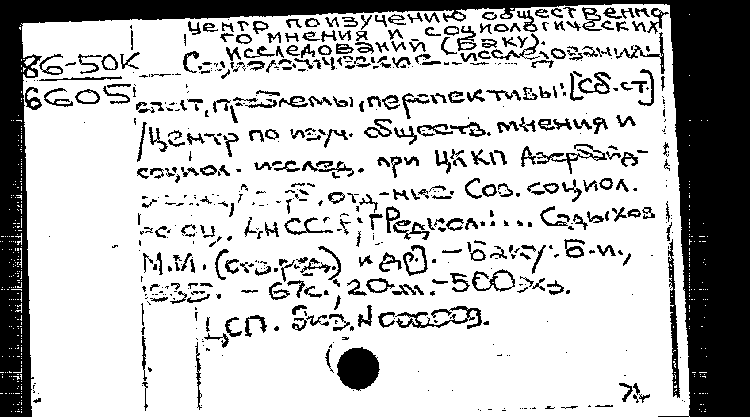 Центр по изучению общественно-
го мнения и социологических
исследований (Баку).
86-50к Социологические исследования:
6605
опыт, проблемы, перспективы: [Сб. ст.]
/Центр по изуч. обществ. мнения и
социол. исслед. при ЦК КП Азербайд-
отд-ние Сов. социол.
ассоц. АН СССР; [Редкол.: ... Садыхов
М.М. (отв. ред.) и др]. - Баку: Б.и.,
- 67с.; 20см. - 500 экз.
ЦСП. Экз. N 000009.